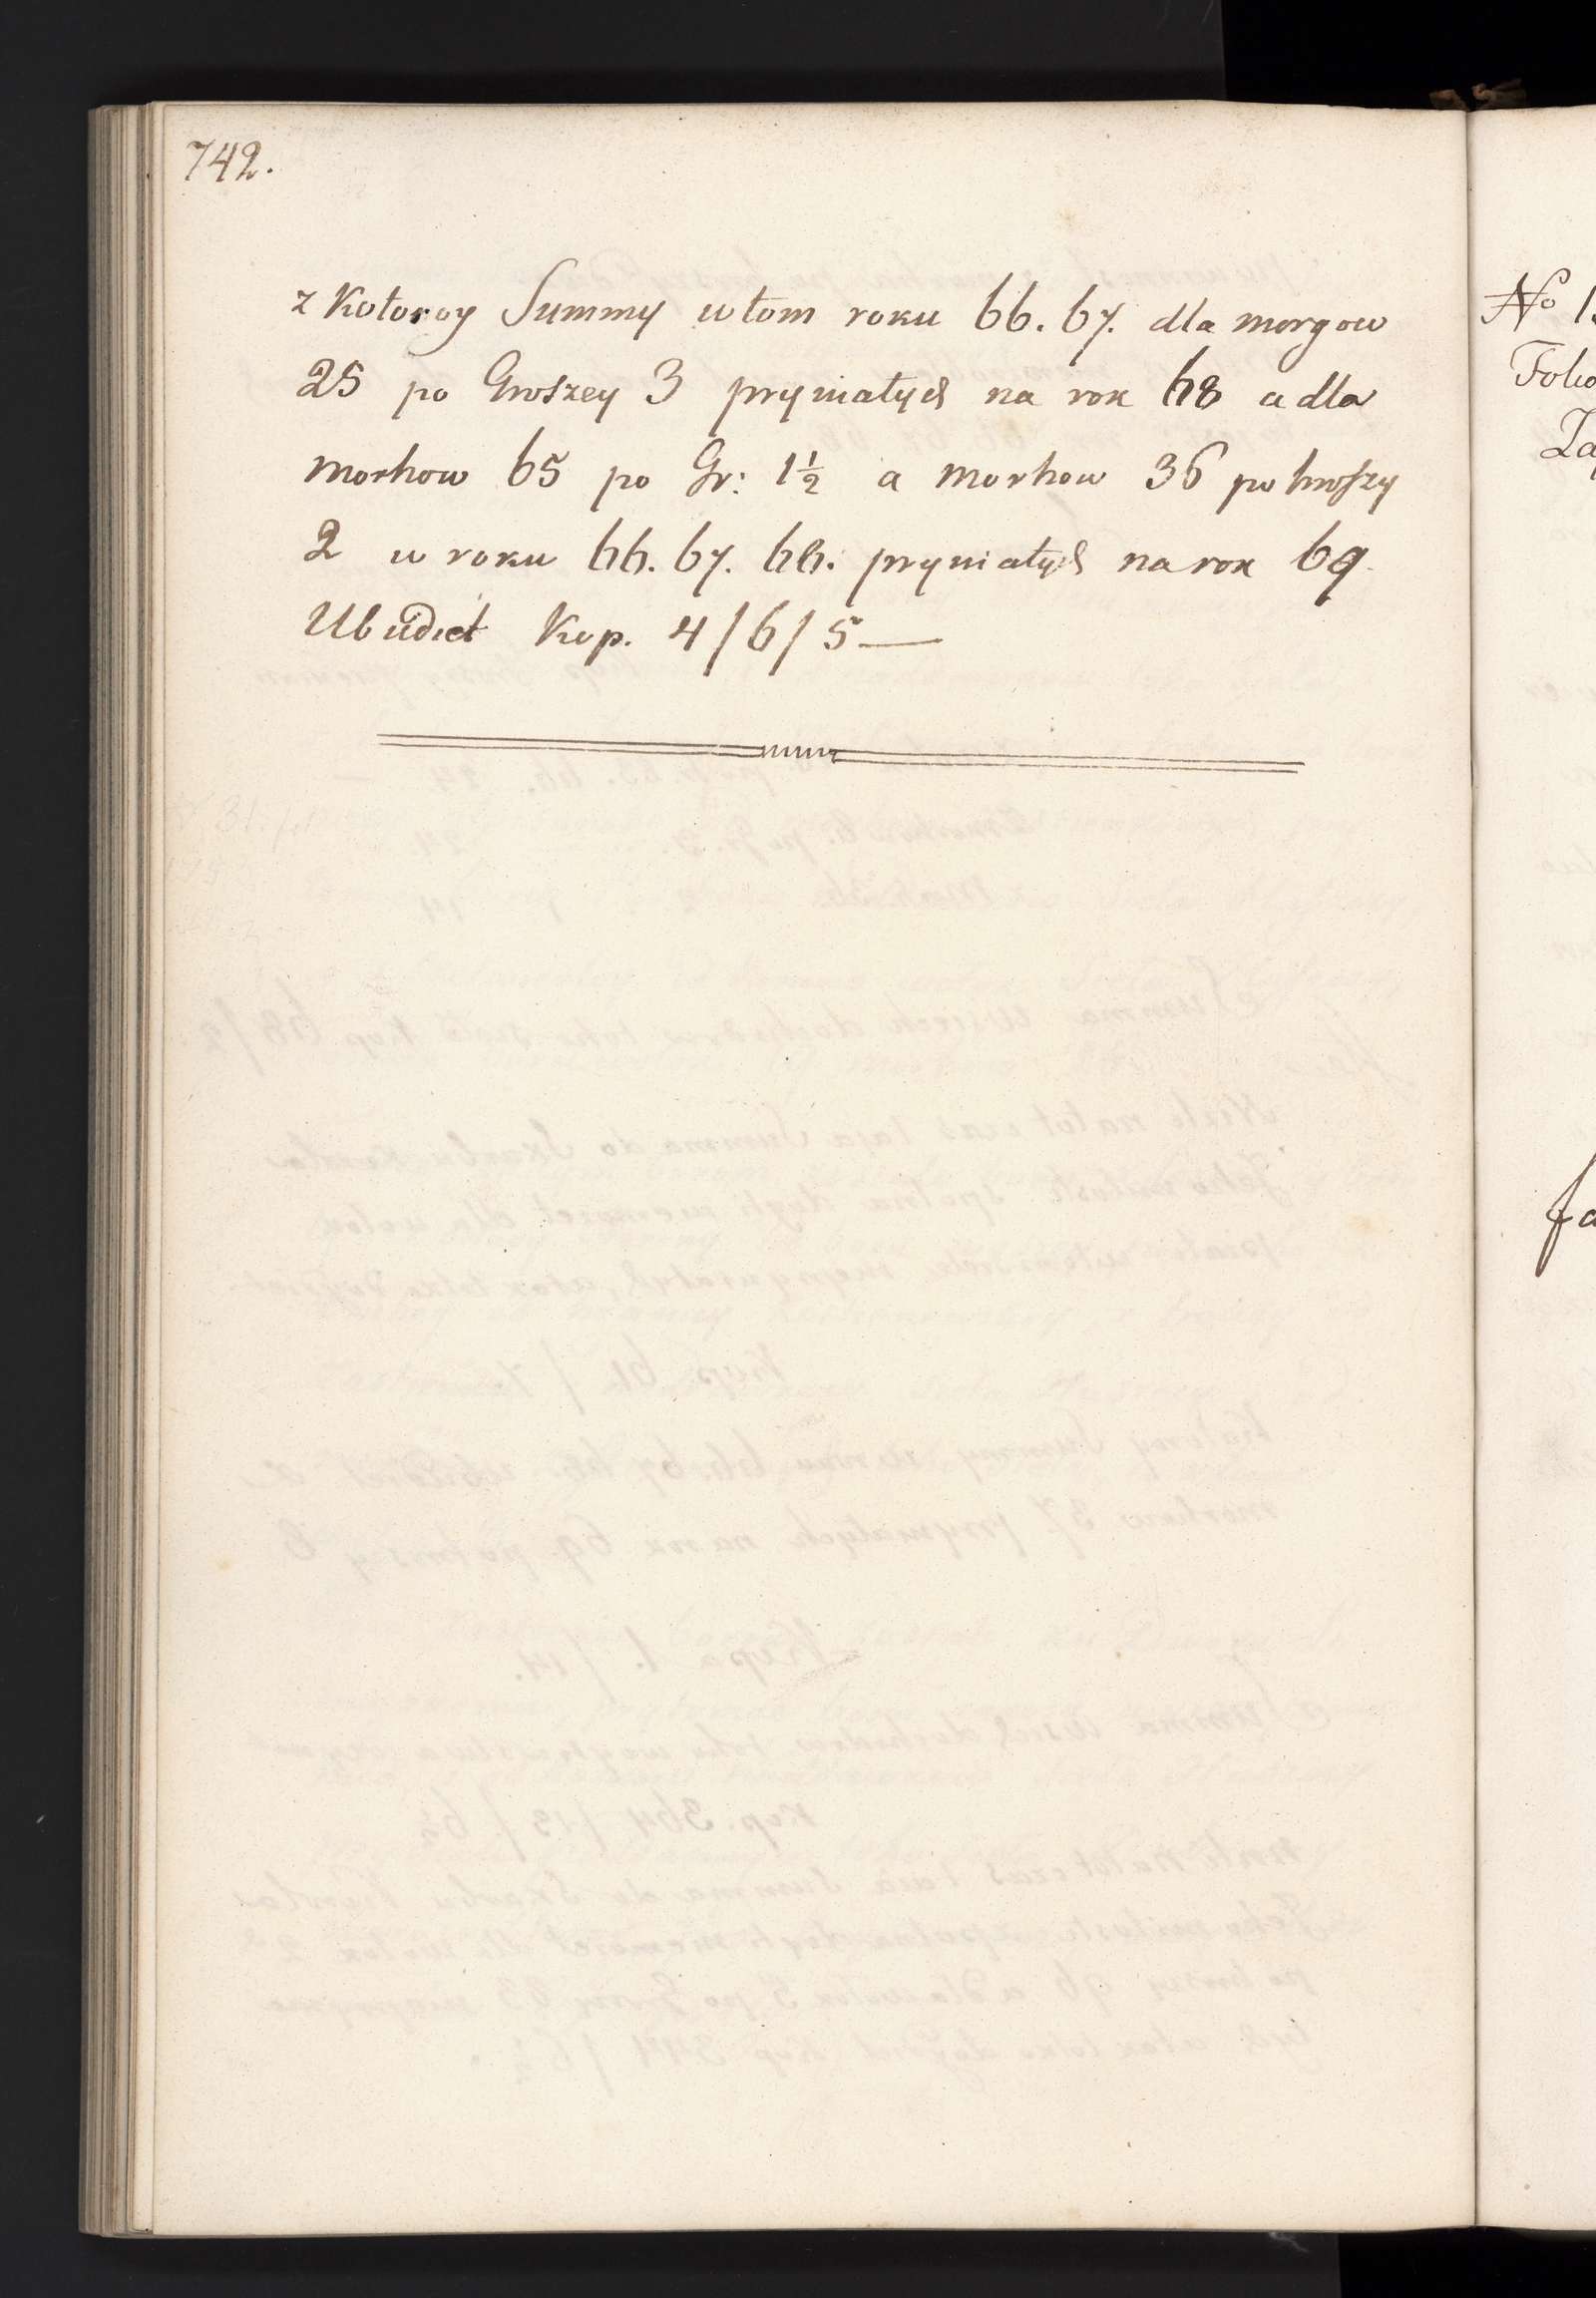 742.
z Kotoroy Summy w tom roku 66. 67. dla morgow
25 po Groszey 3 pryniatych na rok 68 a dla
morhow 65 po Gr: 1½ a morhow 36 po hroszy
2 w roku 66. 67. 68. pryniatych na rok 69.
Ubudiet Kop. 4/6/5—
No 1
Folio
Za
fa